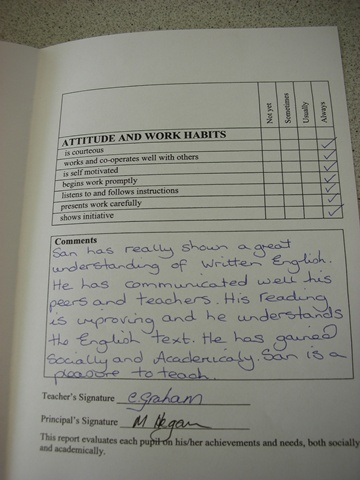 Not yet
Sometimes
Usually
Always
ATTITUDE AND WORK HABITS
is courteous
works and co-operates well with others
is self motivated
begins work promptly
listens to and follows instructions
presents work carefully
shows initiative
Comments
San has really shown a great
understanding of Written English.
He has communicated well his
peers and teachers. His reading
is improving and he understands
the English text. He has gained
Socially and Academically. San is a
pleasure to teach.
Teacher's Signature C Graham
Principal's Signature M Hogan
This report evaluates each pupil on his/her achievements and needs, both socially
and academically.